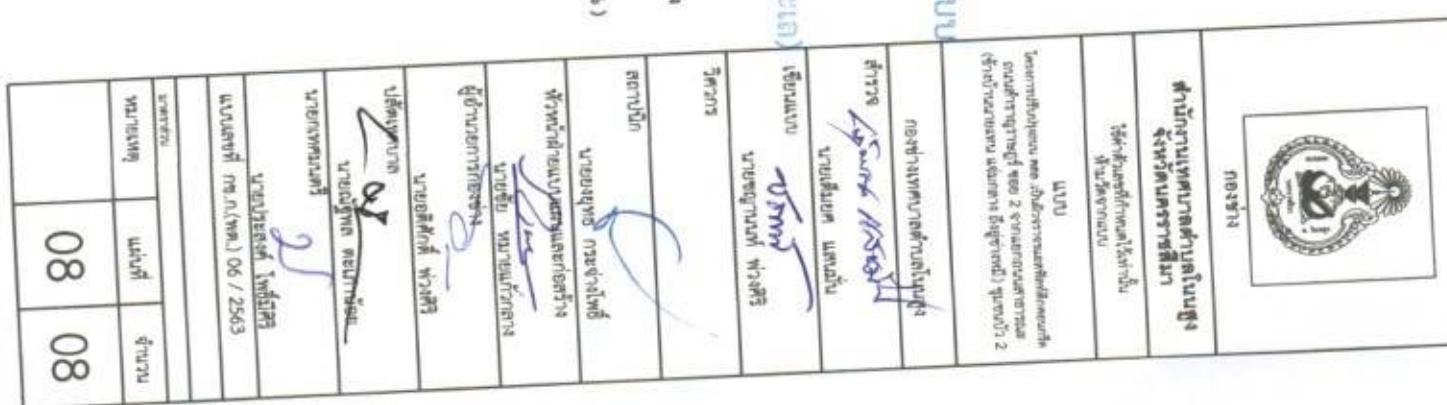 กองช่าง
สำนักงานเทศบาลตำบลโนนสูง
จังหวัดนครราชสีมา
ใช้ค่าตัวเลขที่กำหนดไว้เท่านั้น
ห้ามวัดจากแบบ
แบบ
โครงการปรับปรุงถนน คสล.เป็นผิวจราจรแอสฟัลท์ติกคอนกรีต
ถนนสำราญราษฎร์ ซอย 2 จากแยกถนนสาธารณะ
(ข้างบ้านนายแทน แขมกลาง ถึงอู่ช่างหมี) ชุมชนบัว 2
กองช่างเทศบาลตำบลโนนสูง
สำรวจ
นายเติมยศ แสนมั่น
เขียนแบบ
นายชญานนท์ พ่วงศิริ
วิศวกร
สถาปนิก
นายยงยุทธ กระจ่างโพธิ์
หัวหน้าฝ่ายแบบแผนและก่อสร้าง
นายชัย หมายแก้วกลาง
ผู้อำนวยการกองช่าง
นายอดิศักดิ์ พ่วงศิริ
ปลัดเทศบาล
นายณัฐพล
นายกเทศมนตรี
นายประสงค์ โพธิ์มีศิริ
แบบเลขที่ กช.ถ.(ทต.) 06 / 2563
มาตราส่วน
หมายเหตุ
แผ่นที่
จำนวน
08
08